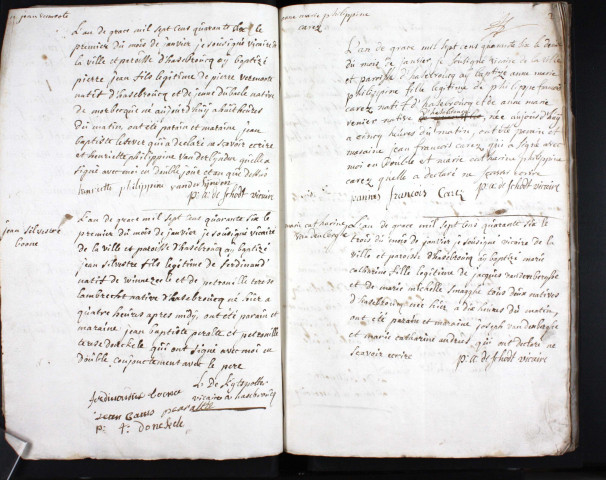 jean vermorte
L'an de grace mil sept cent quarante six le
premier du mois de janvier je soussigné vicaire de
la ville et paroisse d'hasebroucq ay baptizé
pierre jean fils légitime de pierre vermorte
natif d'hasebroucq et de jeane
de morbecque né aujourd'huy a huit heures
du matin, ont été parain et maraine jean
baptiste lefevre qui a declaré ne scavoir ecrire
et henriette philippine vanderlynden quelle a
signé avec moi en double jour et an que dessus
henriette philippine vander lynden
p: a: de schodt vicaire
jean silvestre
L'an de grace mil sept cent quarante six le
premier du mois de janvier, je sousigné vicaire
de la ville et paroisse d'hasebroucq ay baptizé
jean silvestre fils legitime de ferdinand
natif de winnezele et de petronille terese
lambrecht native d'hasebroucq né hier a
quatre heures apres midy, ont été parain et
maraine jean baptiste et petronille
terese donckele, qui ont signé avec moi en
double conjoinctement avec le pere
vicaire d'hasebroucq
p: t: donckele
anne marie philippine
carez
L'an de grace mil sept cens quarante six le
du mois de janvier, je sousigné vicaire de la ville
et paroisse d'hasebroucq ay baptizé anne marie
philippine fille legitime de philippe francois
carez natif d'hasebroucq et de anne marie
native née aujourd'huy
a cinq heures du matin, ont été parain et
maraine jean francois carez qui a signé avec
moi en double et marie catharine philippine
carez quelle a declaré ne scavoir ecrire
joannes francois Carez p: a: de schodt vicaire
marie catharine
vandenberghe
L'an de grace mil sept cent quarante six le
trois du mois de janvier je sousigné vicaire de la
ville et paroisse d'hasebroucq ay baptizé marie
catharine fille legitime de jacques vandenberghe
et de marie michelle tous deux natives
d'hasebroucq née hier a dix heures du matin,
ont été parain et maraine joseph vandenberghe
et marie catharine andries, qui ont declaré ne
scavoir ecrire p: a: de schodt vicaire